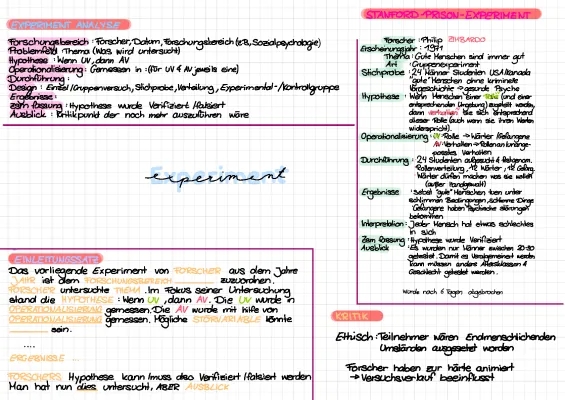 EXPERIMENT ANALYSE
Forschungsbereich: Forscher, Datum, Forschungsbereich (z.B. Sozialpsychologie)
Problemfeld: Thema (Was wird untersucht)
Hypothese: Wenn UV, dann AV
Operationalisierung: Gemessen in: (für UV & AV jeweils eine)
Durchführung:
Design: Einzel/Gruppenversuch, Stichprobe, Verteilung, Experimental-/Kontrollgruppe
Ergebnisse:
zsm fassung: Hypothese wurde Verifiziert/falsiert
Ausblick: Kritikpunkt der noch mehr auszuführen wäre
Experiment
experiment
EINLEITUNGSSATZ
Das vorliegende Experiment von FORSCHER aus dem Jahre
JAHR ist dem FORSCHUNGSBEREICH zuzuordnen.
FORSCHER untersuchte THEMA. Im Fokus seiner Untersuchung
stand die HYPOTHESE: Wenn UV, dann AV. Die UV wurde in
OPERATIONALISIERUNG gemessen. Die AV wurde mit hilfe von
OPERATIONALISIERUNG gemessen. Mögliche STÖRVARIABLE könnte
sein.
....
ERGEBNISSE ...
FORSCHERS Hypothese kann/muss also Verifiziert/falsiert werden
Man hat nun dies untersucht, ABER AUSBLICK
STANFORD-PRISON-EXPERIMENT
Forscher: Philip ZIMBARDO
Erscheinungsjahr: 1971
Thema: Gute Menschen sind immer gut
Art: Gruppenexperiment
Stichprobe: 24 Männer Studenten USA/Kanada
"gute" Menschen ohne kriminelle
Vorgeschichte → gesunde Psyche
Hypothese: Wenn Menschen einer Rolle (und einer
entsprechenden Umgebung) zugeteilt werden,
dann verhalten sie sich entsprechend
dieser Rolle (auch wenn sie ihren Werten
widerspricht).
Operationalisierung: UV: Rolle → Wärter/Gefangene
AV: Verhalten → Rollen an
Verhalten
Durchführung: 24 Studenten aufgesucht &
Rollenverteilung, 12 Wärter, 12 Gefang.
Wärter dürfen machen was sie wollen
(außer Handgewalt)
Ergebnisse: Selbst "gute" Menschen tuen unter
schlimmen Bedingungen, schlimme Dinge
Gefangene haben psychische störungen
bekommen
Interpretation: Jeder Mensch hat etwas schlechtes
in sich
Zsm fassung: Hypothese wurde Verifiziert
Ausblick: Es wurden nur Männer zwischen 20-30
getestet. Damit es Veralgemeinert werden
kann müssen andere Altersklassen &
Geschlecht getestet werden.
Wurde nach 6 Tagen abgebrochen
KRITIK
Ethisch: Teilnehmer wären Endmenschlichenden
Umständen ausgesetzt worden
Forscher haben zur härte animiert
→ Versuchsverlauf beeinflusst